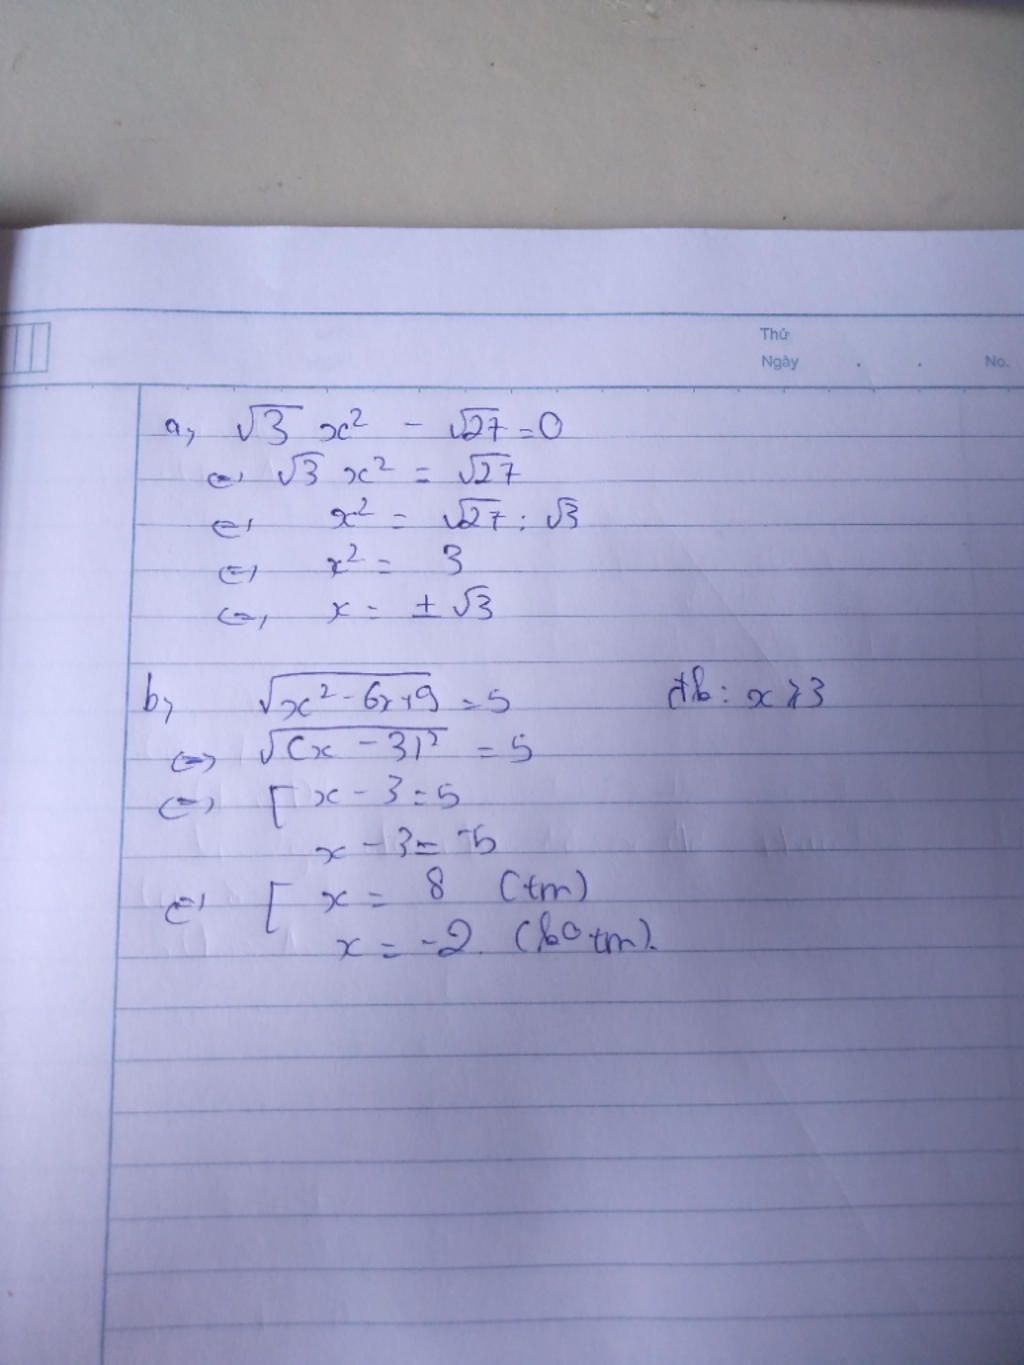 Thứ
Ngày . . No.
a, √3 x² - √27 = 0
⇔ √3 x² = √27
⇔ x² = √27 : √3
⇔ x² = 3
⇔ x = ± √3
b, √(x² - 6x + 9) = 5 đk : x ≥ 3
⇔ √(x - 3)² = 5
⇔ [ x - 3 = 5
x - 3 = -5
⇔ [ x = 8 (tm)
x = -2. (ko tm).